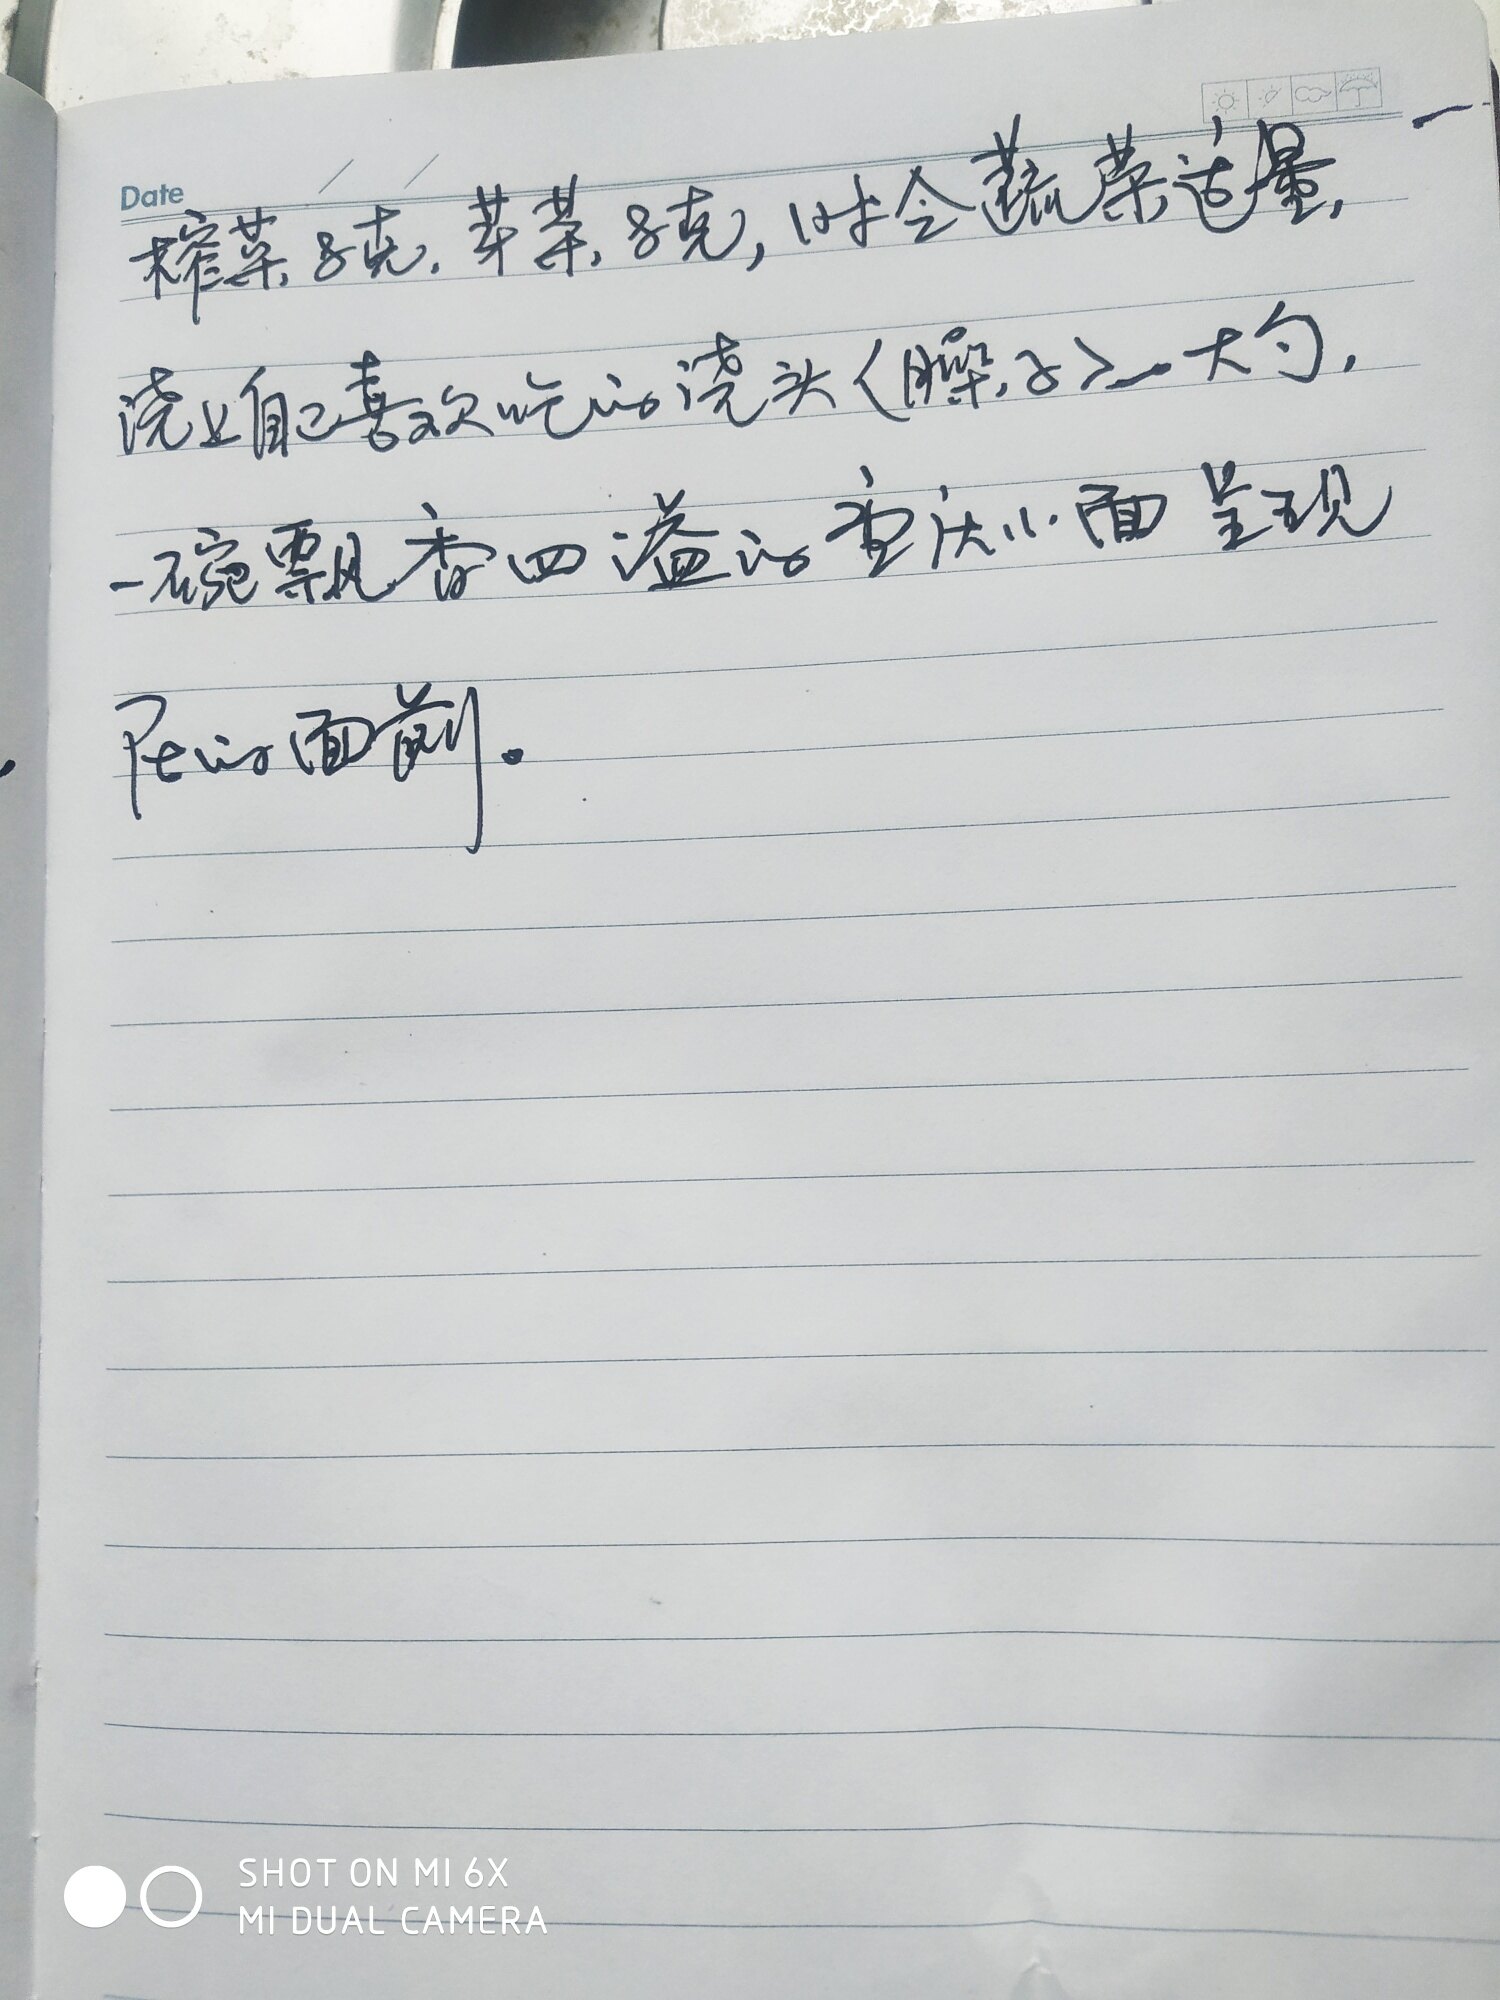 Date / /
榨菜8克.芽菜8克,时令蔬菜适量,
浇上自己喜欢吃的浇头<臊子>一大勺,
一碗飘香四溢的重庆小面呈现
在的面前。
SHOT ON MI 6X
MI DUAL CAMERA